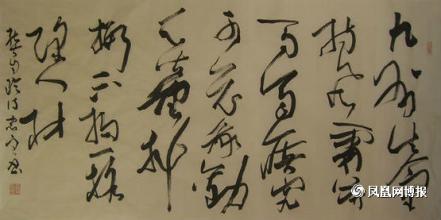 九州生气
恃风雷
万马齐喑究
可哀我劝
天公重抖
擞不拘一格
降人材
龚自珍诗
凤凰网博报